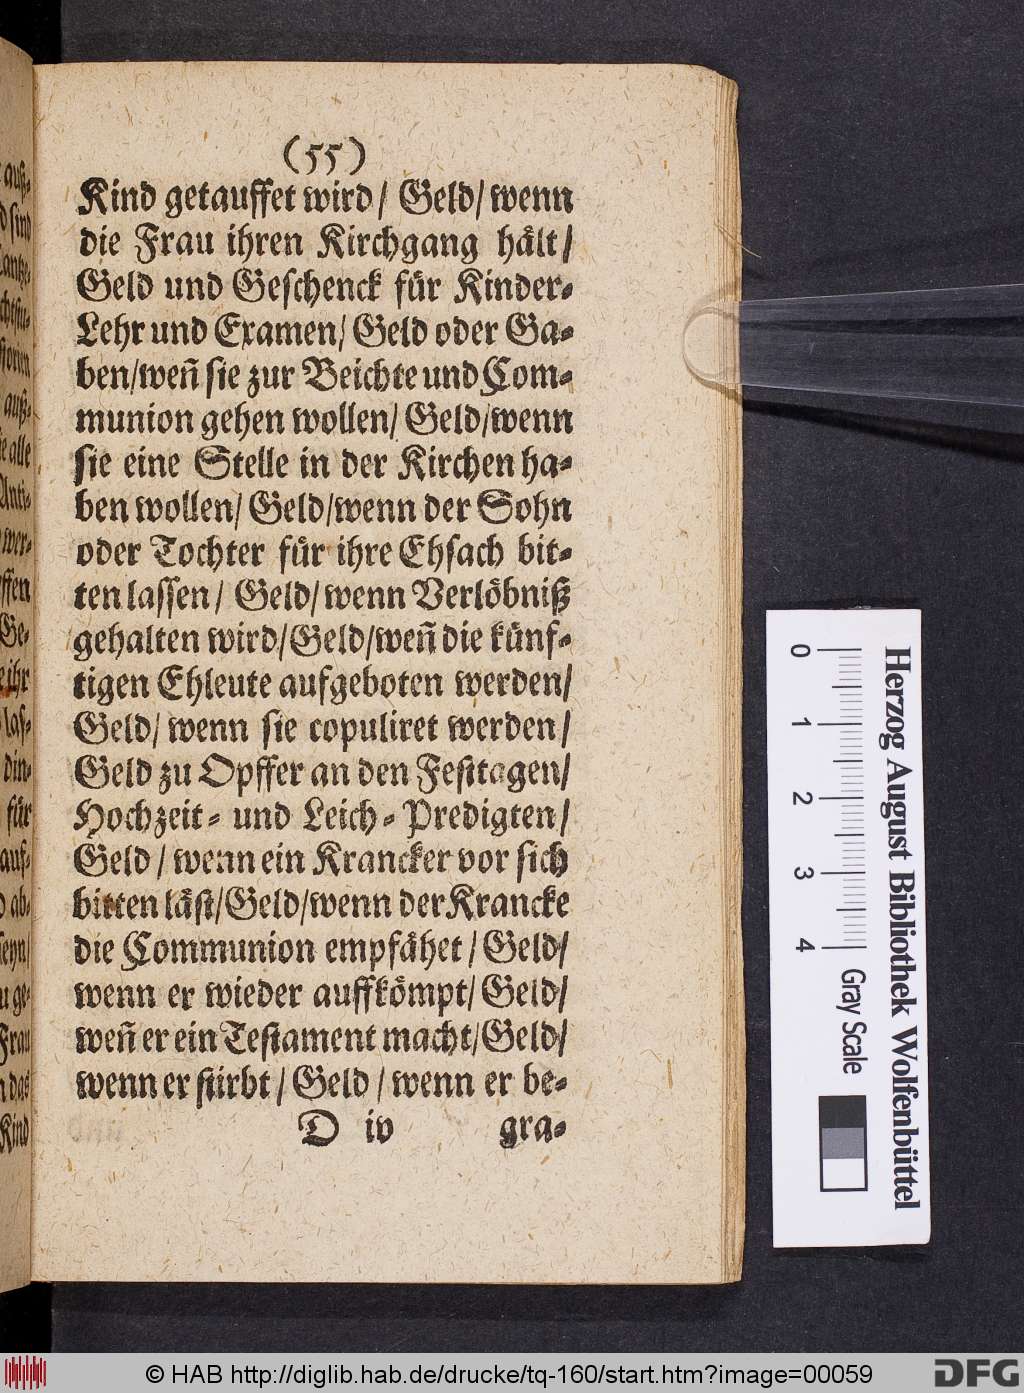 (55)
Kind getauffet wird/ Geld/ wenn
die Frau ihren Kirchgang hält/
Geld und Geschenck für Kinder-
Lehr und Examen/ Geld oder Ga-
ben/ weñ sie zur Beichte und Com-
munion gehen wollen/ Geld/ wenn
sie eine Stelle in der Kirchen ha-
ben wollen/ Geld/ wenn der Sohn
oder Tochter für ihre Ehsach bit-
ten lassen/ Geld/ wenn Verlöbniß
gehalten wird/ Geld/ weñ die künf-
tigen Ehleute aufgeboten werden/
Geld/ wenn sie copuliret werden/
Geld zu Opffer an den Festtagen/
Hochzeit- und Leich-Predigten/
Geld/ wenn ein Krancker vor sich
bitten läst/ Geld/ wenn der Krancke
die Communion empfähet/ Geld/
wenn er wieder auffkömpt/ Geld/
weñ er ein Testament macht/ Geld/
wenn er stirbt/ Geld/ wenn er be-
D iv gra-
auß-
sind
auß-
alle
Anti-
wer-
ffen
Ge-
ihr
las-
din-
für
auf-
ab-
seyn/
ge-
Frau
das
Kind
0 1 2 3 4
Herzog August Bibliothek Wolfenbüttel
Gray Scale
© HAB http://diglib.hab.de/drucke/tq-160/start.htm?image=00059
DFG